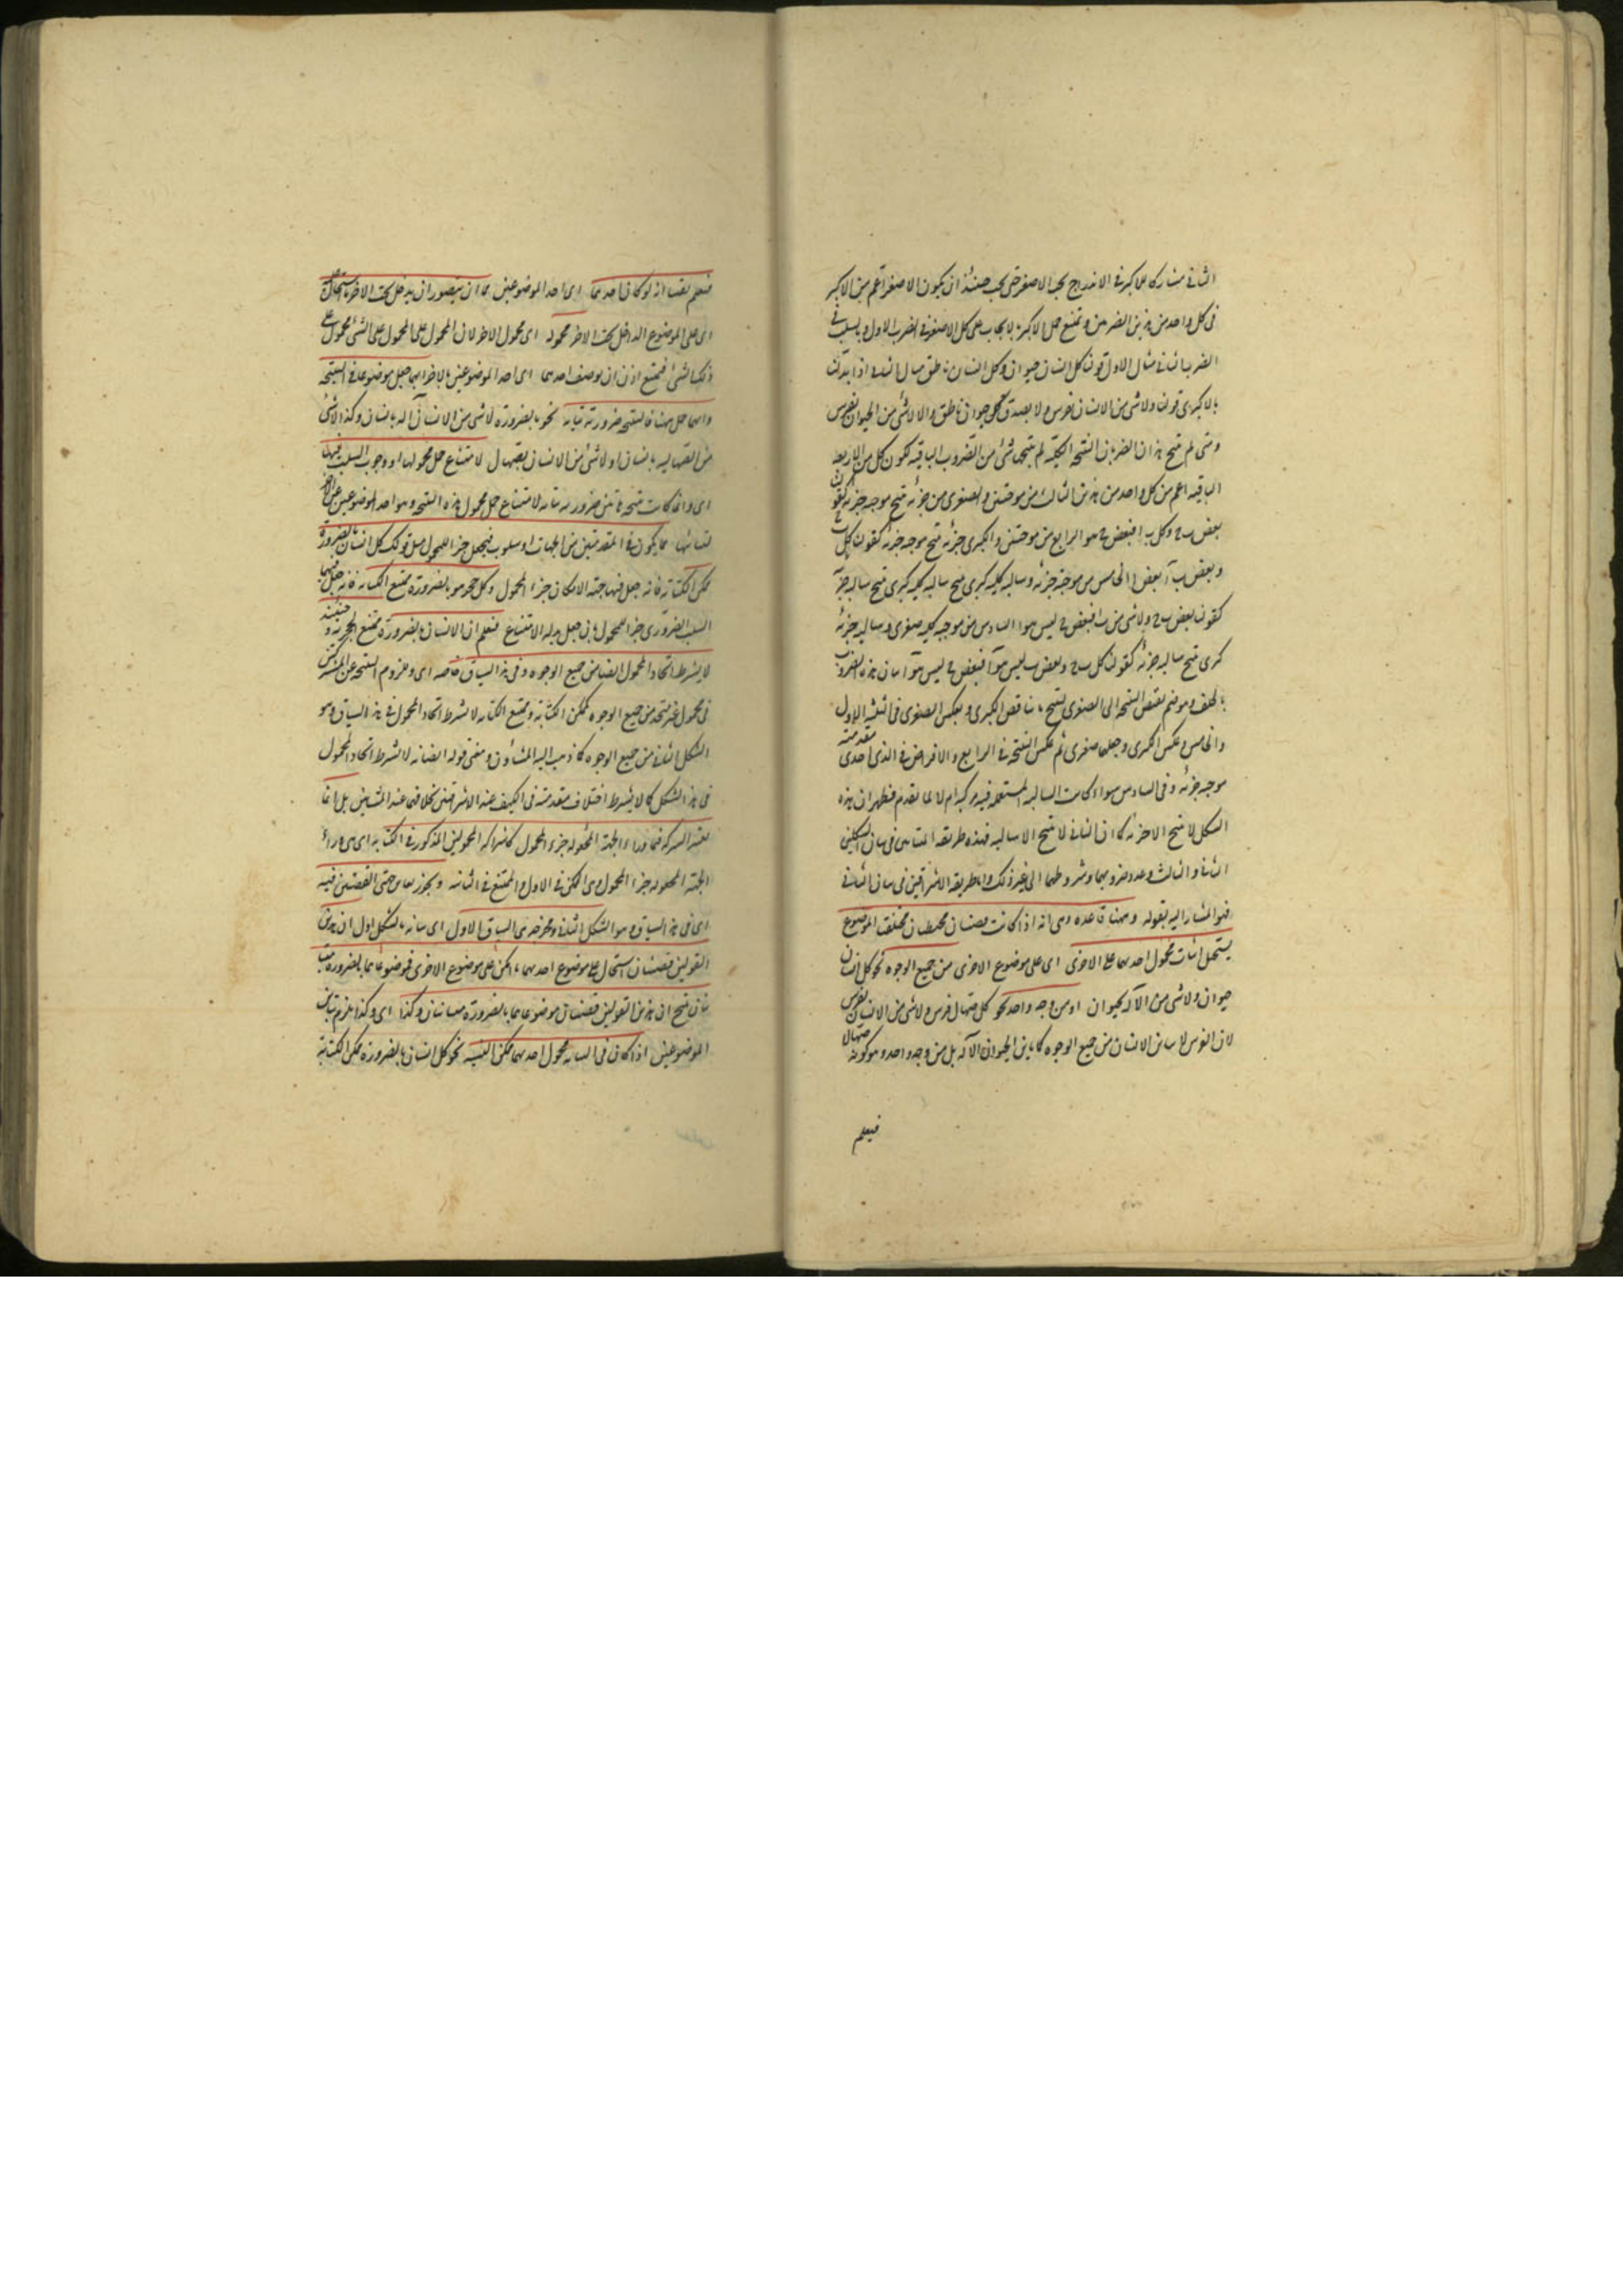 الثانى مشاركا للاكبر فى الاندراج تحت الاصغر حتى يجب حينئذ ان يكون الاصغر اعم من الاكبر
فى كل واحد من هذين الضربين ويمتنع حمل الاكبر بالايجاب على كل الاصغر فى الضرب الاول وبالسلب فى
الضرب الثانى مثال الاول قولنا كل انسان حيوان وكل انسان ناطق مثال الثانى اذا بدلنا
بالكبرى قولنا ولا شى من الانسان بفرس ولا يصدق كل حيوان ناطق ولا لا شى من الحيوان بفرس
ومتى لم ينتج هذان الضربان النتيجة الكلية لم ينتجها شئ من الضروب الباقية لكون كل من الاربعة
الباقية اعم من كل واحد من هذين الثالث من موجبتين والصغرى جزئية ينتج موجبة جزئية كقولنا
بعض ب ج وكل ب ا فبعض ج هو ا الرابع من موجبتين والكبرى جزئية ينتج موجبة جزئية كقولنا كل ب ج
وبعض ب آ بعض ج ا الخامس من موجبة جزئية وسالبة كلية كبرى ينتج سالبة جزئية
كقولنا بعض ب ج ولا شى من ب ا فبعض ج ليس هو ا السادس من موجبة كلية صغرى وسالبة جزئية
كبرى ينتج سالبة جزئية كقولنا كل ب ج وبعض ب ليس هو آ فبعض ج ليس هو آ بيان هذه الضروب
بالخلف وهو ضم نقيض النتيجة الى الصغرى لينتج ما يناقض الكبرى وبعكس الصغرى فى الثلثة الاول
والخامس وعكس الكبرى وجعلها صغرى ثم عكس النتيجة فى الرابع والافتراض فى الذى احدى مقدمتيه
موجبة جزئية وفى السادس سواء كانت السالبة المستعملة فيه مركبة ام لا لما تقدم فظهر ان هذا
الشكل لا ينتج الا جزئية كما ان الثانى لا ينتج الا سالبة فهذه طريقة المشائين فى بيان الشكلين
الثانى والثالث وعدد ضروبهما وشروطهما الى غير ذلك واما طريقة الاشراقيين فى بيان الثانى
فهو المشار اليه بقوله وههنا قاعدة وهى انه اذا كانت قضيتان محيطتان مختلفتا الموضوع
يستحيل اثبات محمول احديهما على الاخرى اى على موضوع الاخرى من جميع الوجوه نحو كل انسان
حيوان ولا شى من الآلة بحيوان او من وجه واحد نحو كل صهال فرس ولا شى من الانسان بفرس
لان الفرس لا يباين الانسان من جميع الوجوه كما يباين الحيوان الآلة بل من وجه واحد وهو كونه صهالا
فيعلم
فيعلم يقينا انه لو كان احدهما اى احد الموضوعين مما ان يتصور ان يدخل تحت الاخر ما استحال
اى على الموضوع الداخل تحت الاخر محموله اى محمول الاخر لان المحمول على المحمول على الشئ محمول على
ذلك الشئ فيمتنع اذن ان يوصف احدهما اى احد الموضوعين بالاخر ايهما جعل موضوعا فى النتيجة
وايهما حمل ههنا فالنتيجة ضرورية بتاتة نحو بالضرورة لا شى من الانسان آلة بانسان وكذا لا شى
من الصهال بانسان او لا شئ من الانسان بصهال لامتناع حمل محمولها او وجوب السلب فيها
اى وانما كانت نتيجة هاتين ضرورية بتاتة لامتناع حمل محمول هذه النتيجة وهو احد الموضوعين على الاخر
لتباينهما مما يكون فى المقدمتين من الجهات او سلوب فيجعل جزء المحمول مثل قولك كل انسان بالضرورة
ممكن الكتابة فانه جعل فيها جهة الامكان جزء المحمول وكل حجر هو بالضرورة ممتنع الكتابة فانه جعل فيها
السلب الضرورى جزء المحمول بان جعل بدله الامتناع فيعلم ان الانسان بالضرورة ممتنع الحجرية وحينئذ
لا يشترط اتحاد المحمول ايضا من جميع الوجوه وفى هذا السياق خاصة اى ولزوم النتيجة عن المشتركتين
فى محمول غير متحد من جميع الوجوه كممكن الكتابة وممتنع الكتابة لا يشترط اتحاد المحمول فى هذا السياق وهو
الشكل الثانى من جميع الوجوه كما ذهب اليه المشاؤن ومعنى قوله ايضا انه لا يشترط اتحاد المحمول
فى هذا الشكل كما لا يشترط اختلاف مقدمتيه فى الكيف عند الاشراقيين بخلافهما عند المشائين بل انما
يعتبر الشركة فيما وراء الجهة المجعولة جزء المحمول كاشتراك المحمولين المذكورين فى الكتابة اى هى وراء
الجهة المجعولة جزء المحمول وهى الممكن فى الاول والممتنع فى الثانية ويجوز تغاير جهتى القضيتين فيه
اى فى هذا السياق وهو الشكل الثانى ومخرجه من السياق الاول اى بيانه بالشكل الاول ان هذين
القولين قضيتان استحال على موضوع احديهما ما امكن على موضوع الاخرى فموضوعاهما بالضرورة متباينان
ينتج ان هذين القولين قضيتان موضوعاهما بالضرورة متباينان وكذا اى وكذا يلزم تباين
الموضوعين اذا كان فى السياق محمول احديهما ممكن النسبة نحو كل انسان بالضرورة ممكن الكتابة